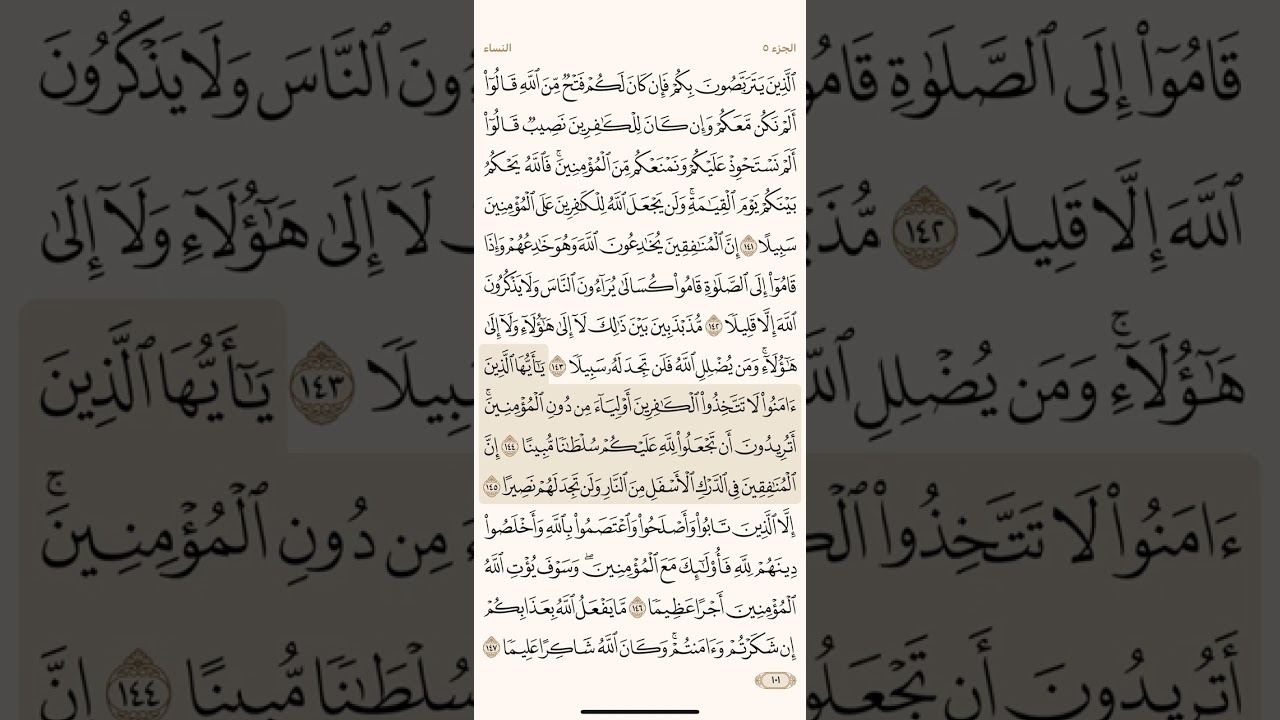 الجزء ٥
النساء
ٱلَّذِينَ يَتَرَبَّصُونَ بِكُمۡ فَإِن كَانَ لَكُمۡ فَتۡحٞ مِّنَ ٱللَّهِ قَالُوٓاْ
أَلَمۡ نَكُن مَّعَكُمۡ وَإِن كَانَ لِلۡكَٰفِرِينَ نَصِيبٞ قَالُوٓاْ
أَلَمۡ نَسۡتَحۡوِذۡ عَلَيۡكُمۡ وَنَمۡنَعۡكُم مِّنَ ٱلۡمُؤۡمِنِينَۚ فَٱللَّهُ يَحۡكُمُ
بَيۡنَكُمۡ يَوۡمَ ٱلۡقِيَٰمَةِۚ وَلَن يَجۡعَلَ ٱللَّهُ لِلۡكَٰفِرِينَ عَلَى ٱلۡمُؤۡمِنِينَ
سَبِيلًا ١٤١ إِنَّ ٱلۡمُنَٰفِقِينَ يُخَٰدِعُونَ ٱللَّهَ وَهُوَ خَٰدِعُهُمۡ وَإِذَا
قَامُوٓاْ إِلَى ٱلصَّلَوٰةِ قَامُواْ كُسَالَىٰ يُرَآءُونَ ٱلنَّاسَ وَلَا يَذۡكُرُونَ
ٱللَّهَ إِلَّا قَلِيلٗا ١٤٢ مُّذَبۡذَبِينَ بَيۡنَ ذَٰلِكَ لَآ إِلَىٰ هَٰٓؤُلَآءِ وَلَآ إِلَىٰ
هَٰٓؤُلَآءِۚ وَمَن يُضۡلِلِ ٱللَّهُ فَلَن تَجِدَ لَهُۥ سَبِيلٗا ١٤٣ يَٰٓأَيُّهَا ٱلَّذِينَ
ءَامَنُواْ لَا تَتَّخِذُواْ ٱلۡكَٰفِرِينَ أَوۡلِيَآءَ مِن دُونِ ٱلۡمُؤۡمِنِينَۚ
أَتُرِيدُونَ أَن تَجۡعَلُواْ لِلَّهِ عَلَيۡكُمۡ سُلۡطَٰنٗا مُّبِينًا ١٤٤ إِنَّ
ٱلۡمُنَٰفِقِينَ فِي ٱلدَّرۡكِ ٱلۡأَسۡفَلِ مِنَ ٱلنَّارِ وَلَن تَجِدَ لَهُمۡ نَصِيرًا ١٤٥
إِلَّا ٱلَّذِينَ تَابُواْ وَأَصۡلَحُواْ وَٱعۡتَصَمُواْ بِٱللَّهِ وَأَخۡلَصُواْ
دِينَهُمۡ لِلَّهِ فَأُوْلَٰٓئِكَ مَعَ ٱلۡمُؤۡمِنِينَۖ وَسَوۡفَ يُؤۡتِ ٱللَّهُ
ٱلۡمُؤۡمِنِينَ أَجۡرًا عَظِيمٗا ١٤٦ مَّا يَفۡعَلُ ٱللَّهُ بِعَذَابِكُمۡ
إِن شَكَرۡتُمۡ وَءَامَنتُمۡۚ وَكَانَ ٱللَّهُ شَاكِرًا عَلِيمٗا ١٤٧
١٠١